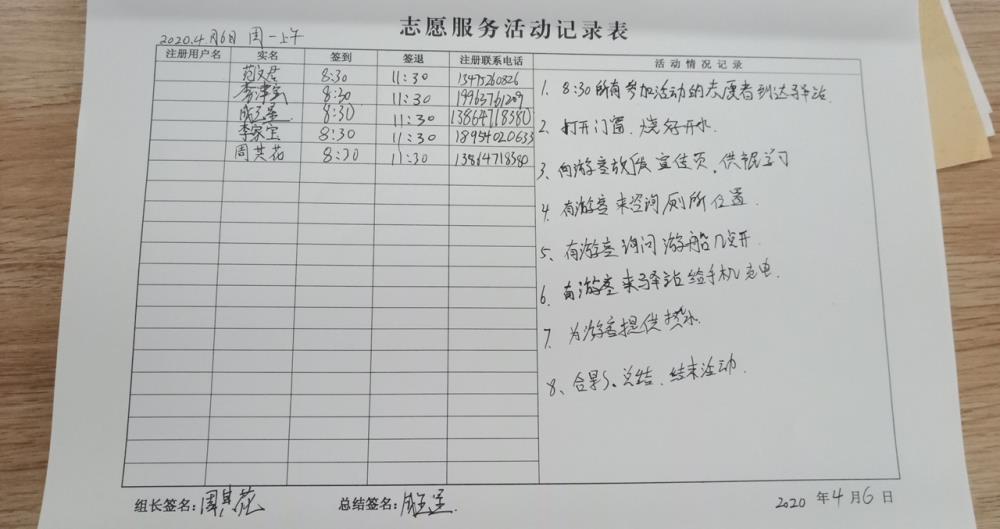 志愿服务活动记录表
2020.4月6日 周一上午
注册用户名 实名 签到 签退 注册联系电话 活动情况记录
范文君 8:30 11:30 13475260826
8:30 11:30 19963761209
8:30 11:30 13864718380
李家宝 8:30 11:30 18954020633
周其花 8:30 11:30 13864718380
1. 8:30所有参加活动的志愿者到达驿站.
2. 打开门窗.烧好开水
3. 向游客放发宣传页.供学习
4. 有游客来咨询厕所位置.
5. 有游客询问游船几点开.
6. 有游客来驿站给手机充电.
7. 为游客提供热水.
8、合影、总结、结束活动.
组长签名:周其花 总结签名:
2020 年 4 月 6 日